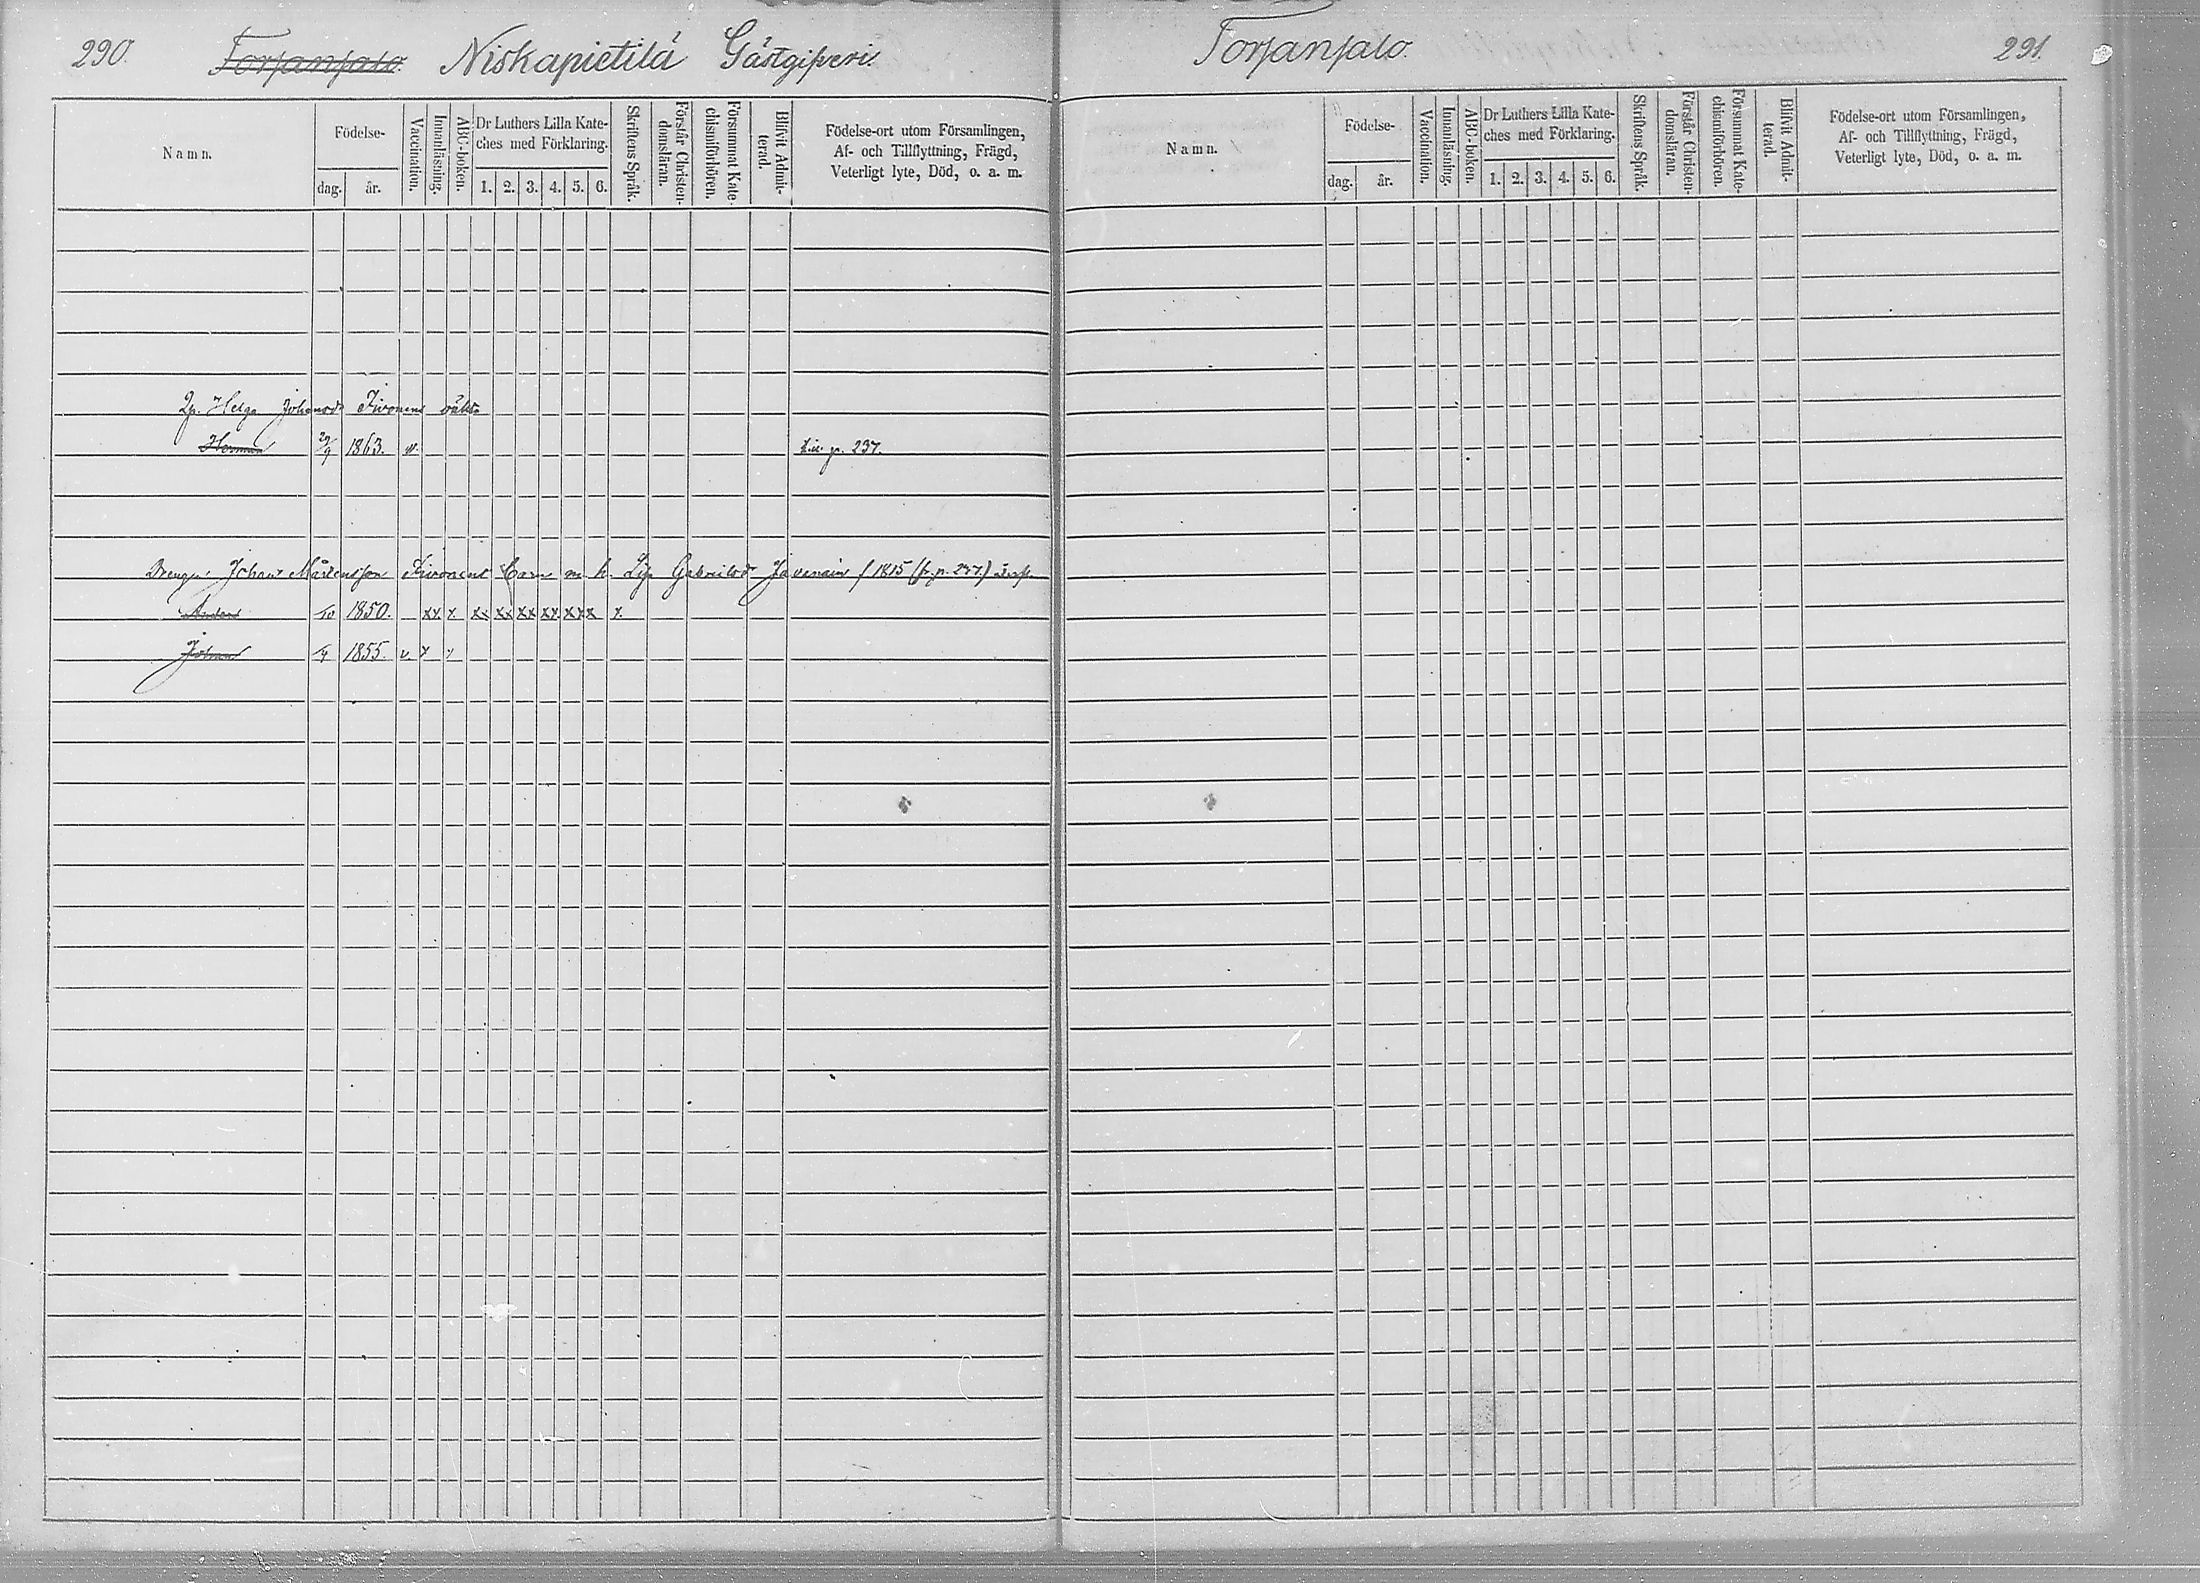 290. Torsansalo. Niskapietilä Gästgifveri.
Namn.
Födelse-
dag. år.
Vaccination.
Innanläsning.
ABC-boken.
Dr Luthers Lilla Kate-
ches med Förklaring.
1. 2. 3. 4. 5. 6.
Skriftens Språk.
Förstår Christen-
domsläran.
Försummat Kate-
chismiförhören.
Blifvit Admit-
terad.
Födelse-ort utom Församlingen,
Af- och Tillflyttning, Frägd,
Veterligt lyte, Död, o. a. m.
Helga Johansdr
Herman 29/9 1863. v. p. 237.
Johan Mårtensson Barn m. h. Gabrielsdr f 1815
Anders /10 1850. xx x xx xx xx xx xxx x
Johan /4 1855. v. x x
Torsansalo. 291.
Namn.
Födelse-
dag. år.
Vaccination.
Innanläsning.
ABC-boken.
Dr Luthers Lilla Kate-
ches med Förklaring.
1. 2. 3. 4. 5. 6.
Skriftens Språk.
Förstår Christen-
domsläran.
Försummat Kate-
chismiförhören.
Blifvit Admit-
terad.
Födelse-ort utom Församlingen,
Af- och Tillflyttning, Frägd,
Veterligt lyte, Död, o. a. m.